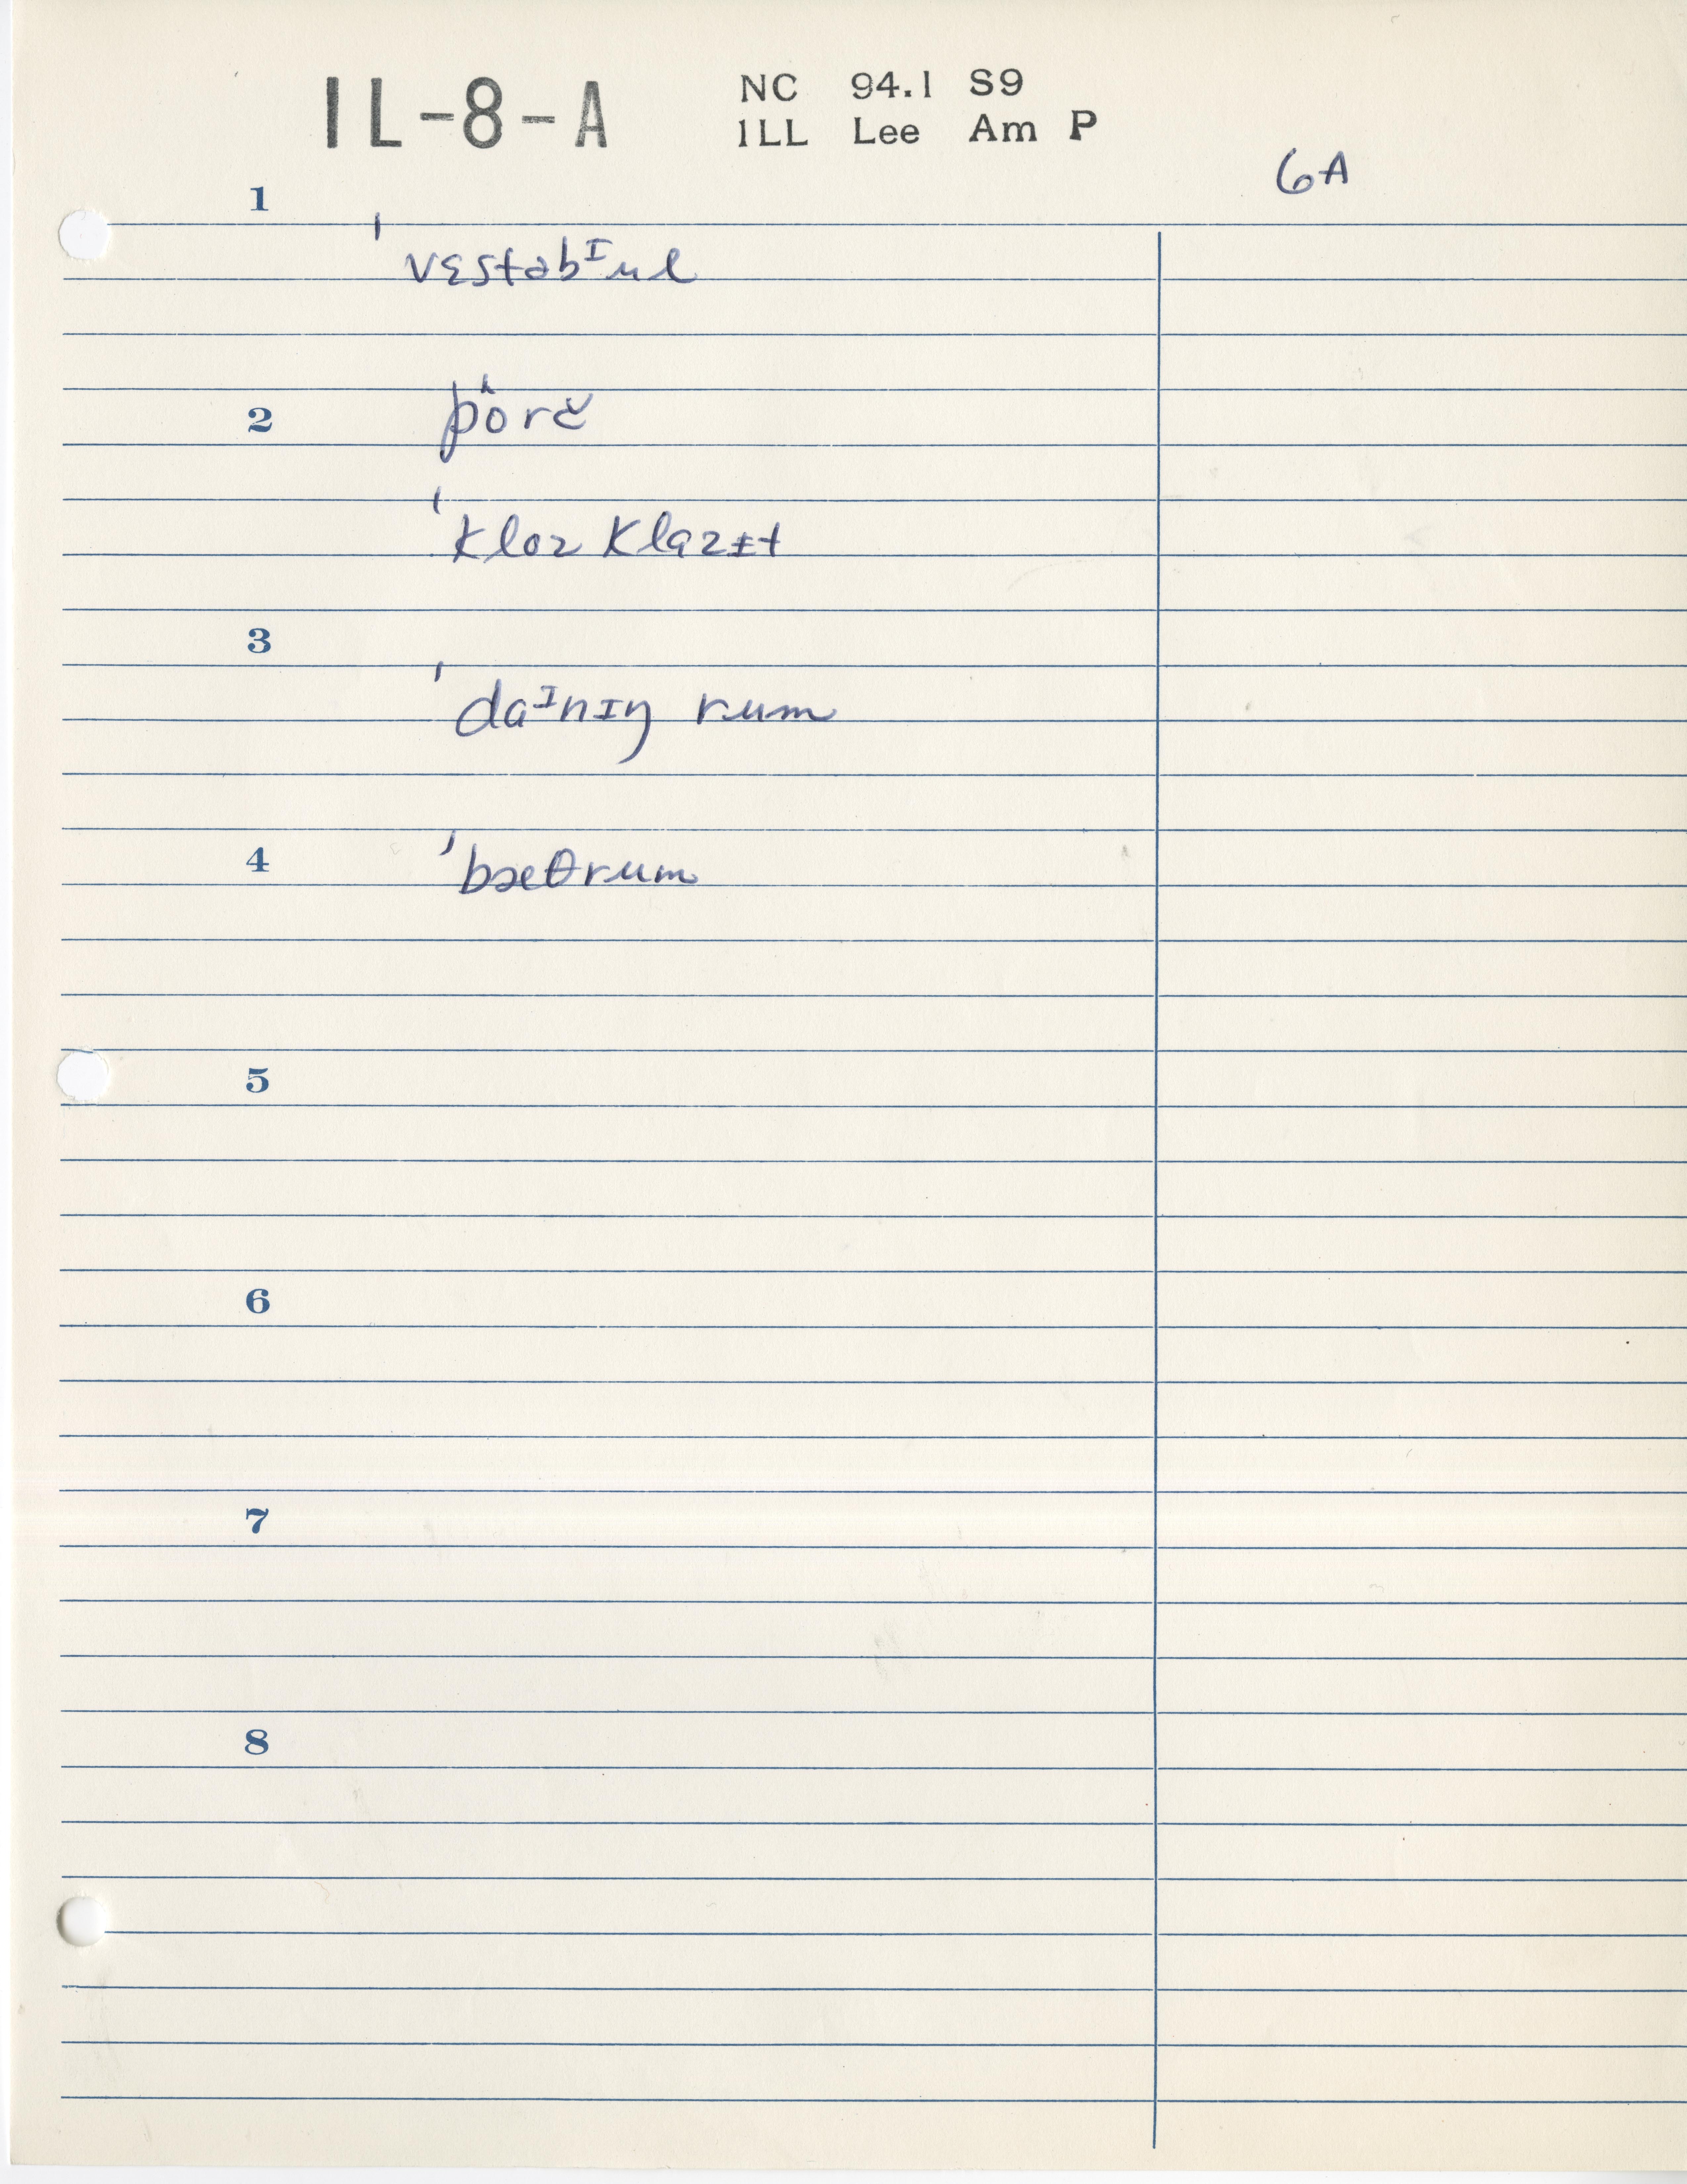 IL-8-A NC 94.1 S9
ILL Lee Am P
6A
1
ˈvɛstəbᴵul
2 pôrč
ˈkloz klazɪt
3
ˈdaᴵnɪŋ rum
4 ˈbæθrum
5
6
7
8